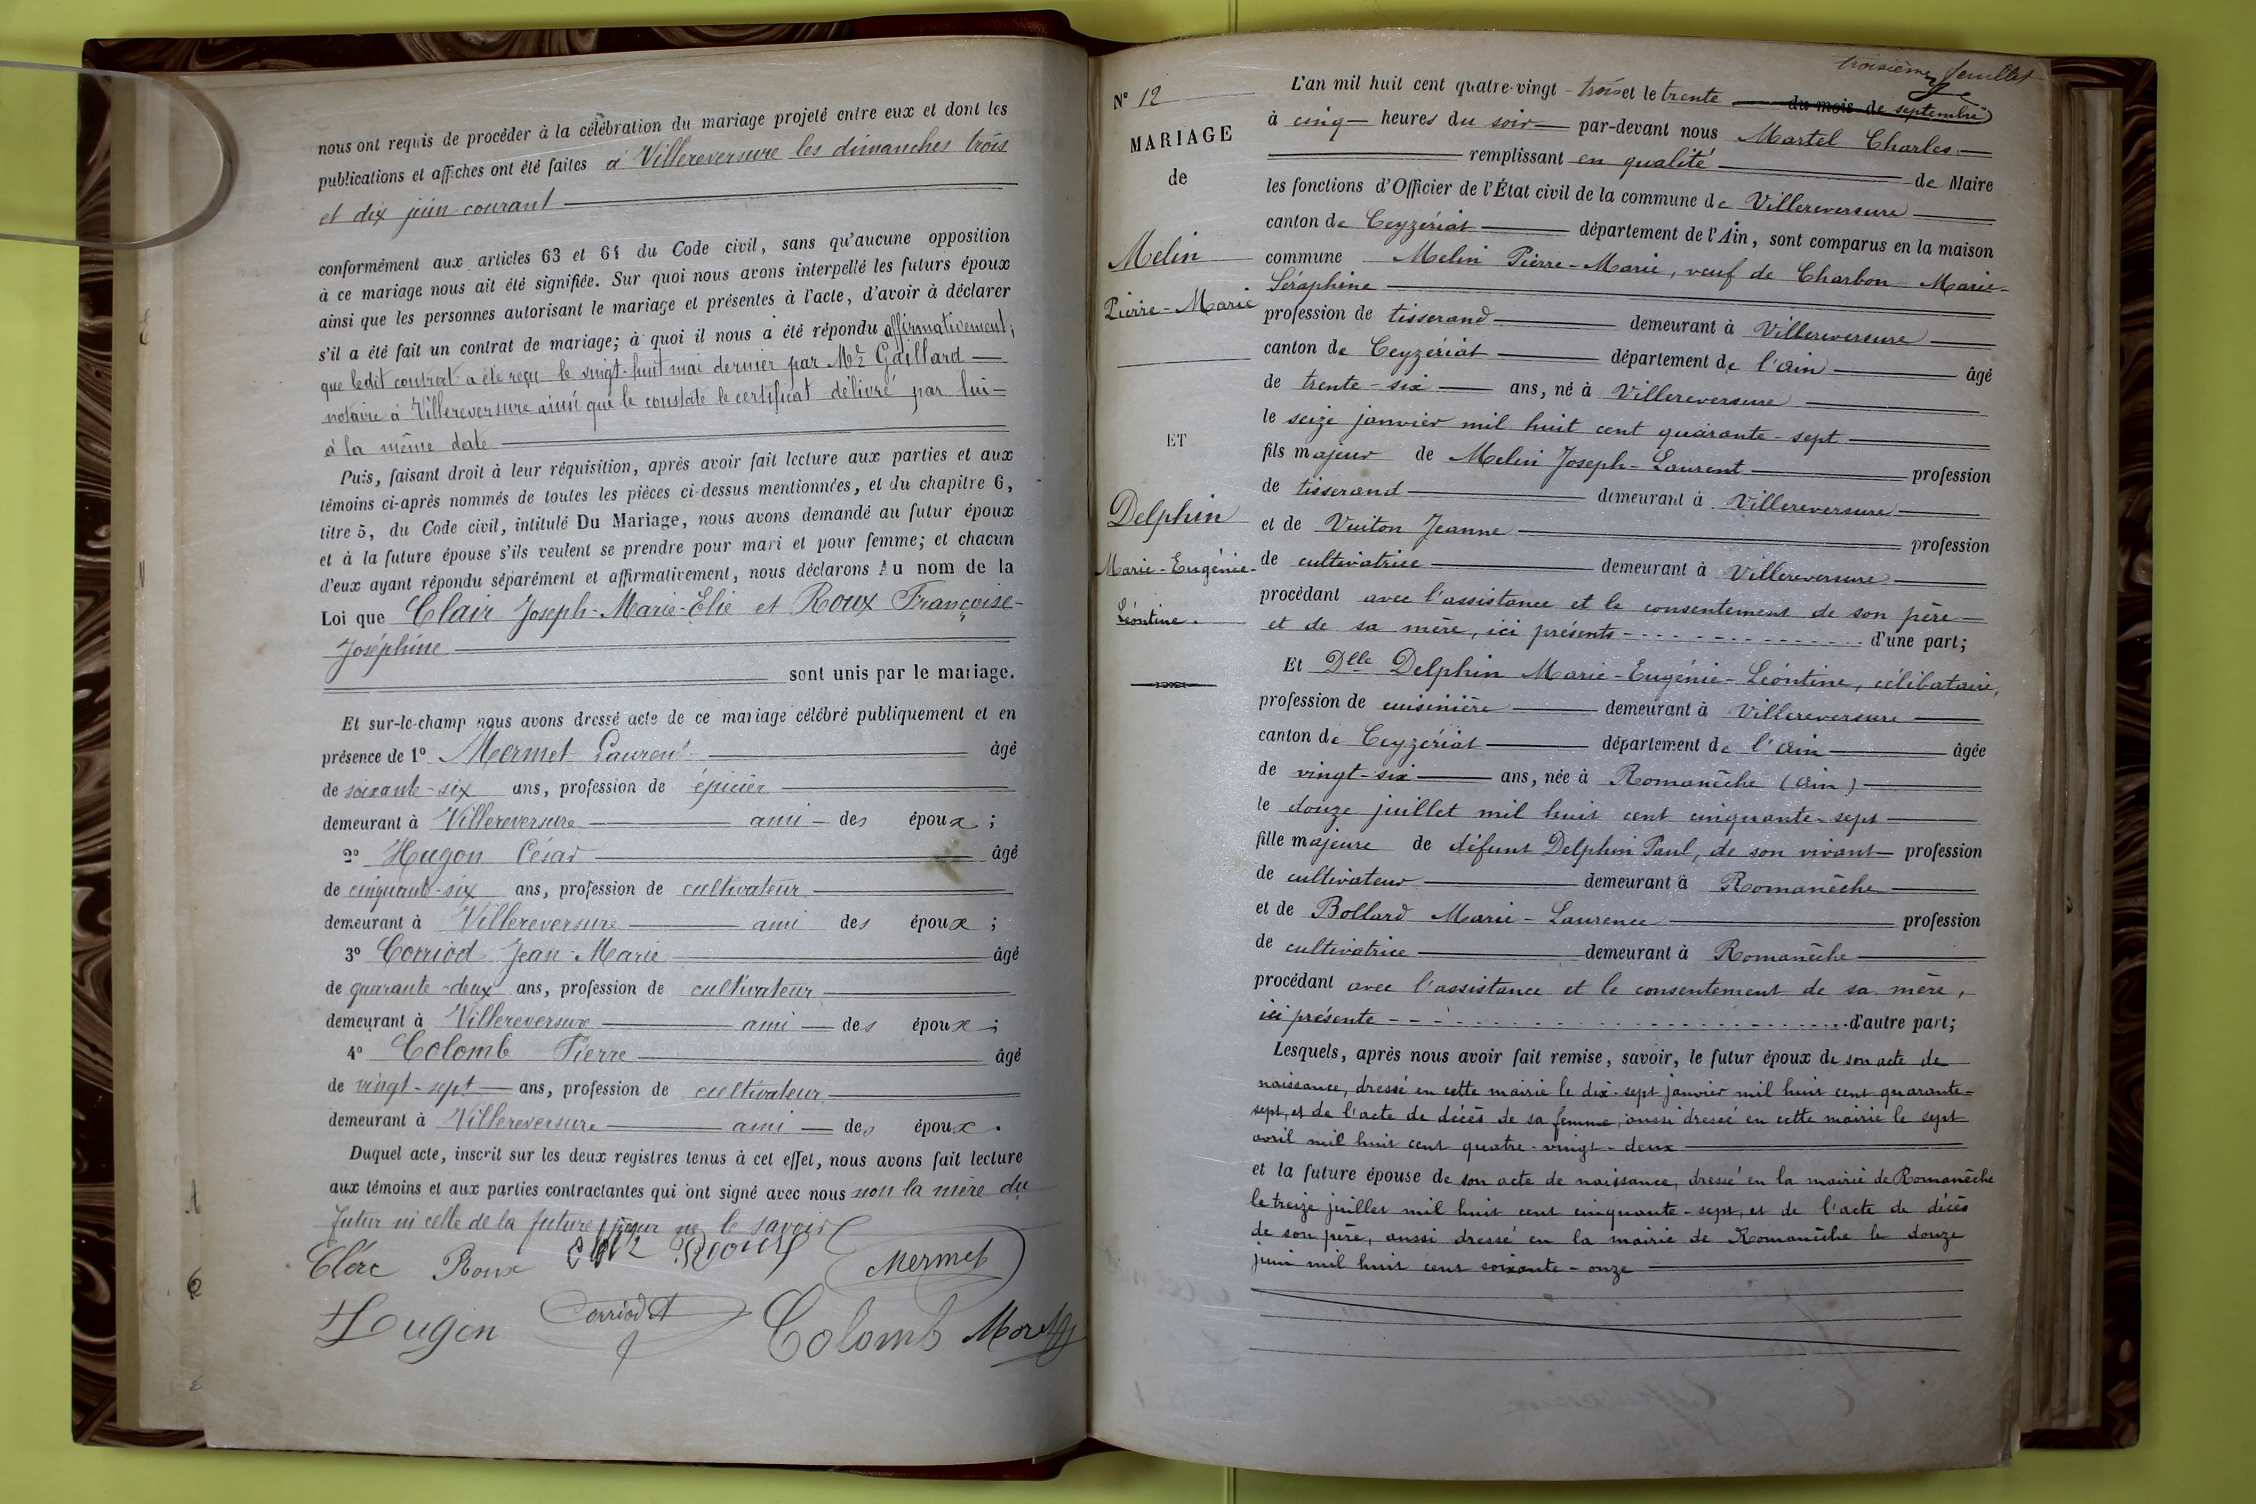 nous ont requis de procéder à la célébration du mariage projeté entre eux et dont les
publications et affiches ont été faites à Villereversure les dimanches trois
et dix juin courant
conformément aux articles 63 et 64 du Code civil, sans qu'aucune opposition
à ce mariage nous ait été signifiée. Sur quoi nous avons interpellé les futurs époux
ainsi que les personnes autorisant le mariage et présentes à l'acte, d'avoir à déclarer
s'il a été fait un contrat de mariage; à quoi il nous a été répondu affirmativement;
que ledit contrat a été reçu le vingt-huit mai dernier par Me Gaillard
notaire à Villereversure ainsi que le constate le certificat délivré par lui
à la même date
Puis, faisant droit à leur réquisition, après avoir fait lecture aux parties et aux
témoins ci-après nommés de toutes les pièces ci-dessus mentionnées, et du chapitre 6,
titre 5, du Code civil, intitulé Du Mariage, nous avons demandé au futur époux
et à la future épouse s'ils veulent se prendre pour mari et pour femme; et chacun
d'eux ayant répondu séparément et affirmativement, nous déclarons Au nom de la
Loi que Clair Joseph-Marie-Elie et Roux Françoise-
Joséphine
sont unis par le mariage.
Et sur-le-champ nous avons dressé acte de ce mariage célébré publiquement et en
présence de 1° Mermet Laurent âgé
de soixante-six ans, profession de épicier
demeurant à Villereversure ami des époux;
2° Hugon César âgé
de cinquante-six ans, profession de cultivateur
demeurant à Villereversure ami des époux;
3° Corriod Jean-Marie âgé
de quarante-deux ans, profession de cultivateur
demeurant à Villereversure ami des époux;
4° Colomb Pierre âgé
de vingt-sept ans, profession de cultivateur
demeurant à Villereversure ami des époux.
Duquel acte, inscrit sur les deux registres tenus à cet effet, nous avons fait lecture
aux témoins et aux parties contractantes qui ont signé avec nous non la mère du
futur ni celle de la future pour ne le savoir
Clerc Roux Roux Mermet
Hugon Corriod Colomb
troisième feuillet
N° 12
MARIAGE
de
Melin
Pierre-Marie
ET
Delphin
Marie-Eugénie-
Léontine.
L'an mil huit cent quatre-vingt-trois et le trente du mois de septembre
à cinq heures du soir par-devant nous Martel Charles
remplissant en qualité de Maire
les fonctions d'Officier de l'État civil de la commune de Villereversure
canton de Ceyzériat département de l'Ain, sont comparus en la maison
commune Melin Pierre-Marie, veuf de Charbon Marie-
Séraphine
profession de tisserand demeurant à Villereversure
canton de Ceyzériat département de l'Ain âgé
de trente-six ans, né à Villereversure
le seize janvier mil huit cent quarante-sept
fils majeur de Melin Joseph-Laurent profession
de tisserand demeurant à Villereversure
et de Vuiton Jeanne profession
de cultivatrice demeurant à Villereversure
procédant avec l'assistance et le consentement de son père
et de sa mère, ici présents d'une part;
Et Dlle Delphin Marie-Eugénie-Léontine, célibataire,
profession de cuisinière demeurant à Villereversure
canton de Ceyzériat département de l'Ain âgée
de vingt-six ans, née à Romanèche (Ain)
le douze juillet mil huit cent cinquante-sept
fille majeure de défunt Delphin Paul, de son vivant profession
de cultivateur demeurant à Romanèche
et de Bollard Marie-Laurence profession
de cultivatrice demeurant à Romanèche
procédant avec l'assistance et le consentement de sa mère,
ici présente d'autre part;
Lesquels, après nous avoir fait remise, savoir, le futur époux de son acte de
naissance, dressé en cette mairie le dix-sept janvier mil huit cent quarante-
sept, et de l'acte de décès de sa femme, aussi dressé en cette mairie le sept
avril mil huit cent quatre-vingt-deux
et la future épouse de son acte de naissance, dressé en la mairie de Romanèche
le treize juillet mil huit cent cinquante-sept, et de l'acte de décès
de son père, aussi dressé en la mairie de Romanèche le douze
juin mil huit cent soixante-onze